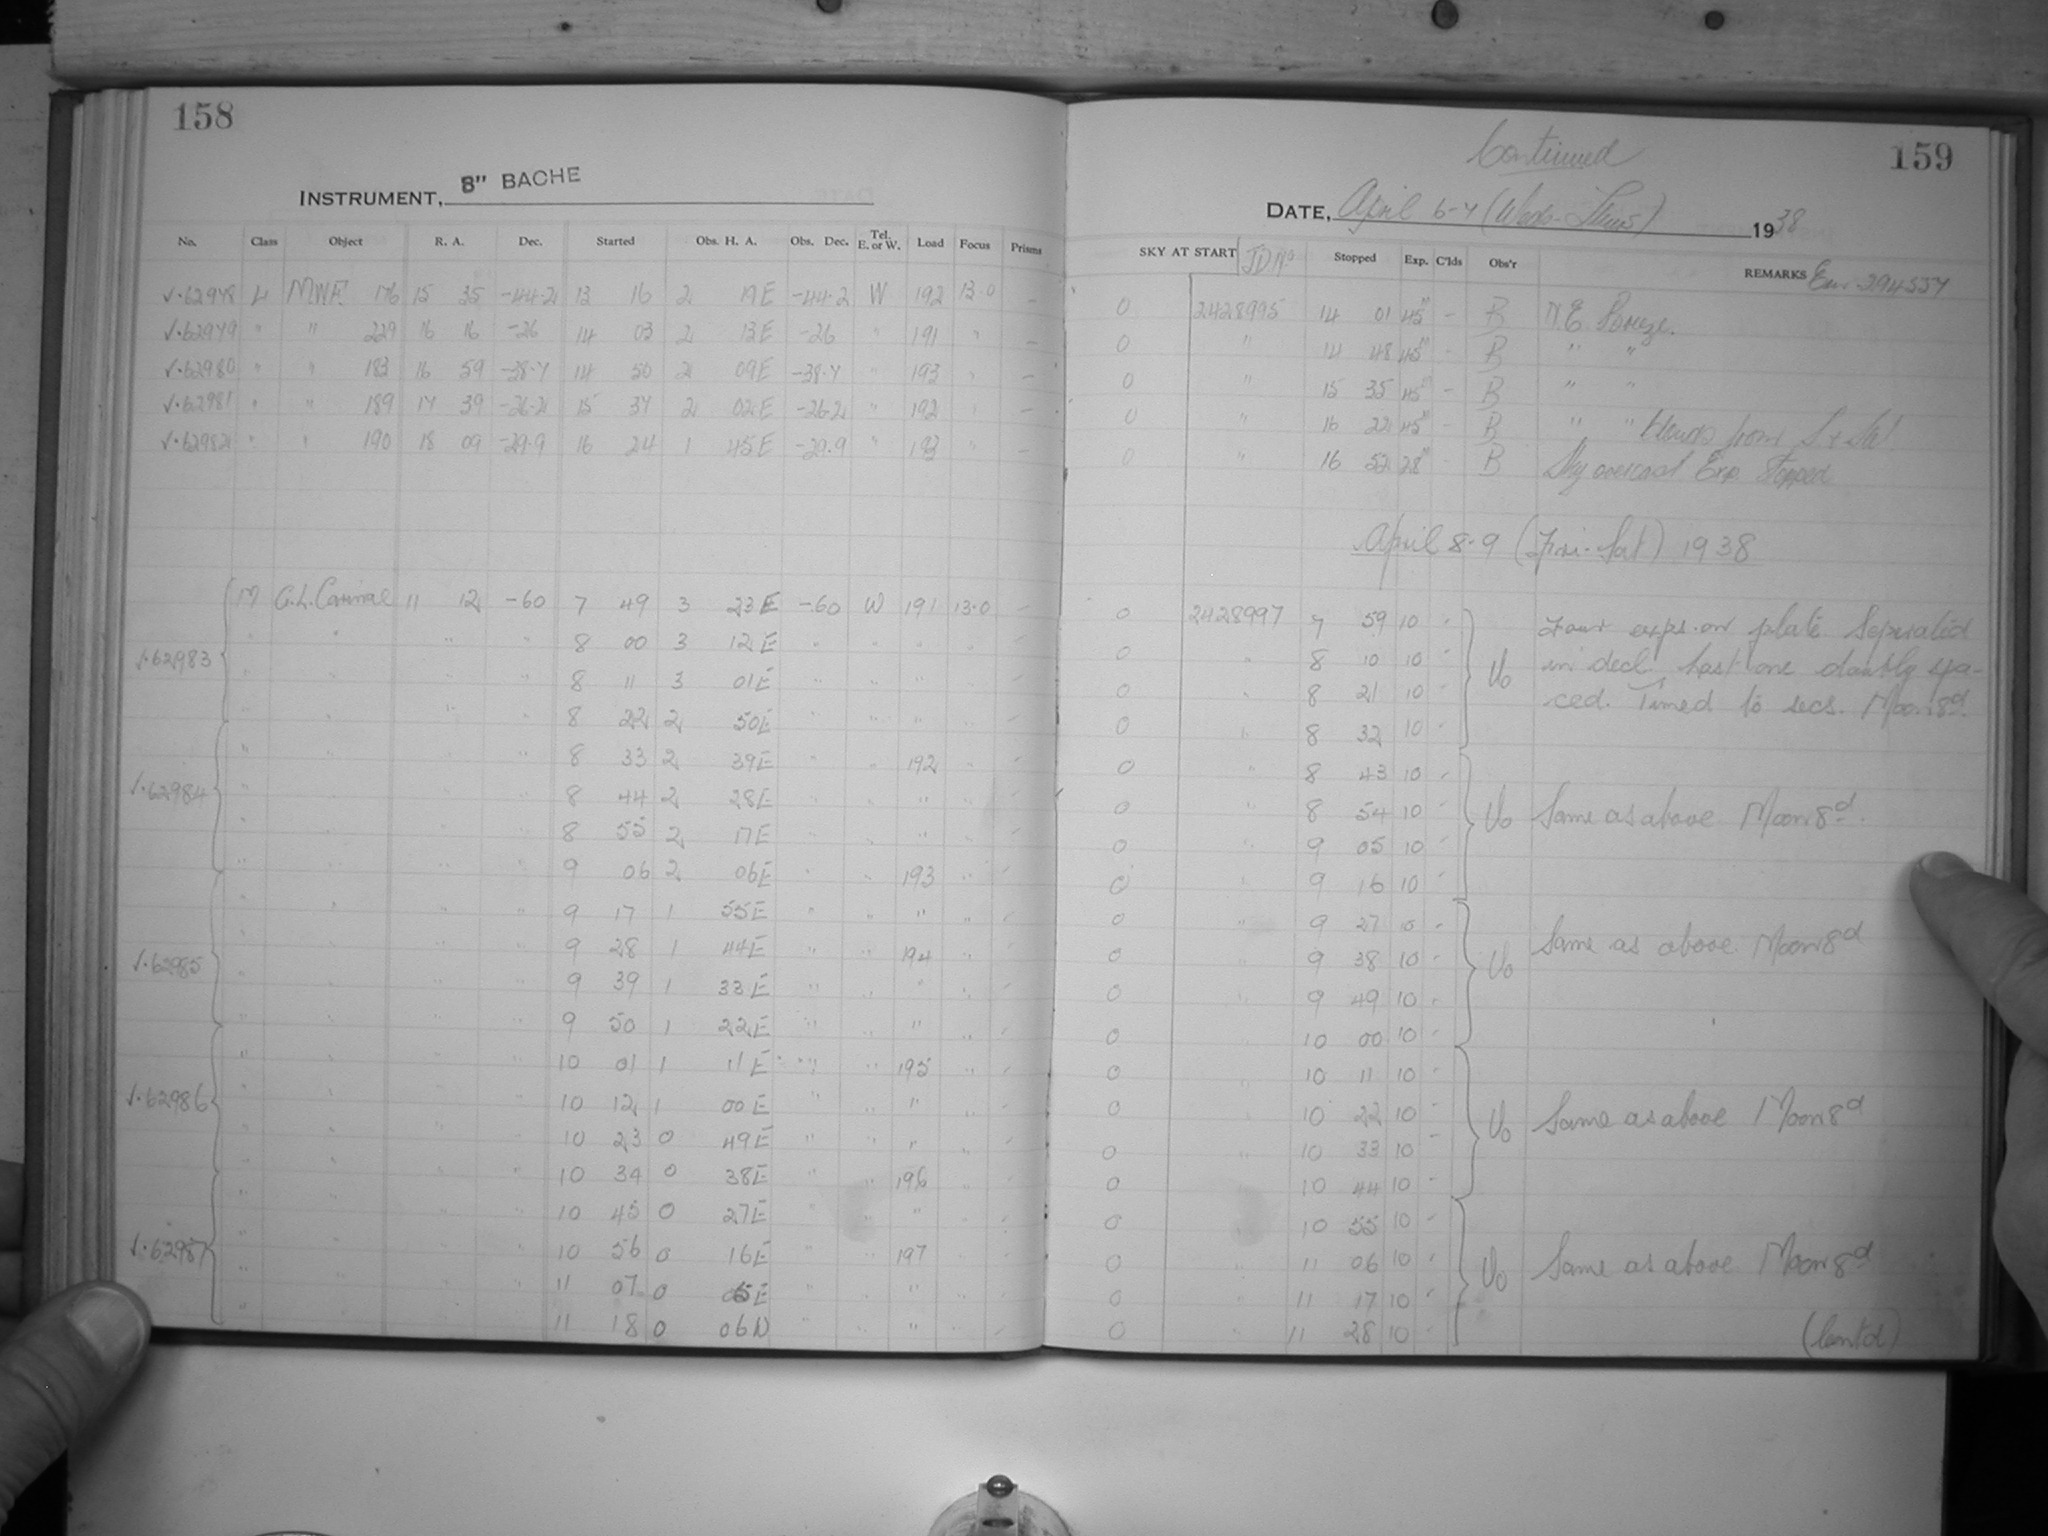 158
INSTRUMENT, 8" BACHE
No. Class Object R. A. Dec. Started Obs. H. A. Obs. Dec. Tel. E. or W. Load Focus Prisms
√.62978 L MWF 176 15 35 -44.2 13 16 2 19E -44.2 W 192 13.0 –
√.62979 " " 229 16 16 -26 14 03 2 13E -26 " 191 " –
√.62980 " " 183 16 59 -38.7 14 50 2 09E -38.7 " 193 " –
√.62981 " " 189 17 39 -26.2 15 37 2 02E -26.2 " 192 " –
√.62982 " " 190 18 09 -29.9 16 24 1 45E -29.9 " 193 " –
M G.L. Carinae 11 12 -60 7 49 3 23E -60 W 191 13.0 –
" " " " 8 00 3 12E " " " " –
√.62983
" " " " 8 11 3 01E " " " " –
" " " " 8 22 2 50E " " " " –
" " " " 8 33 2 39E " " 192 " –
√.62984
" " " " 8 44 2 28E " " " " –
" " " " 8 55 2 17E " " " " –
" " " " 9 06 2 06E " " 193 " –
" " " " 9 17 1 55E " " " " –
√.62985
" " " " 9 28 1 44E " " 194 " –
" " " " 9 39 1 33E " " " " –
" " " " 9 50 1 22E " " " " –
" " " " 10 01 1 11E " " 195 " –
√.62986
" " " " 10 12 1 00E " " " " –
" " " " 10 23 0 49E " " " " –
" " " " 10 34 0 38E " " 196 " –
" " " " 10 45 0 27E " " " " –
√.62987
" " " " 10 56 0 16E " " 197 " –
" " " " 11 07 0 05E " " " " –
" " " " 11 18 0 06W " " " " –
Continued
159
DATE, April 6-7 (Weds-Thurs) 1938
SKY AT START JD No Stopped Exp. C'lds Obs'r REMARKS 294557
0 2428995 14 01 45m – B N.E. Breeze.
0 " 14 48 45m – B " "
0 " 15 35 45m – B " "
0 " 16 22 45m – B " " Clouds from S + SW
0 " 16 52 28m – B Sky overcast Exp. Stopped
April 8-9 (Fri-Sat) 1938
0 2428997 7 59 10 – Four exps. on plate Seperated
0 " 8 10 10 – Uo in decl. Last one doubly spa-
0 " 8 21 10 – ced. Timed to secs. Moon 8d.
0 " 8 32 10 –
0 " 8 43 10 –
0 " 8 54 10 – Uo Same as above Moon 8d.
0 " 9 05 10 –
0 " 9 16 10 –
0 " 9 27 10 –
0 " 9 38 10 – Uo Same as above Moon 8d
0 " 9 49 10 –
0 " 10 00 10 –
0 " 10 11 10 –
0 " 10 22 10 – Uo Same as above Moon 8d
0 " 10 33 10 –
0 " 10 44 10 –
0 " 10 55 10 –
0 " 11 06 10 – Uo Same as above Moon 8d
0 " 11 17 10 –
0 " 11 28 10 –
(Contd)